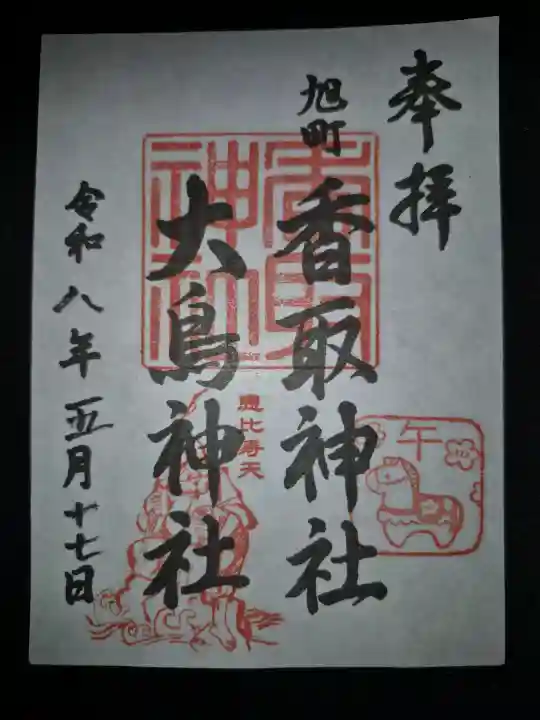 奉拝
旭町
香取神社
大鳥神社
香取
神社
恵比寿天
午
令和八年五月十七日